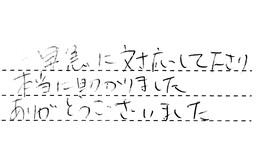 早急に対応して下さり
本当に助かりました
ありがとうございました